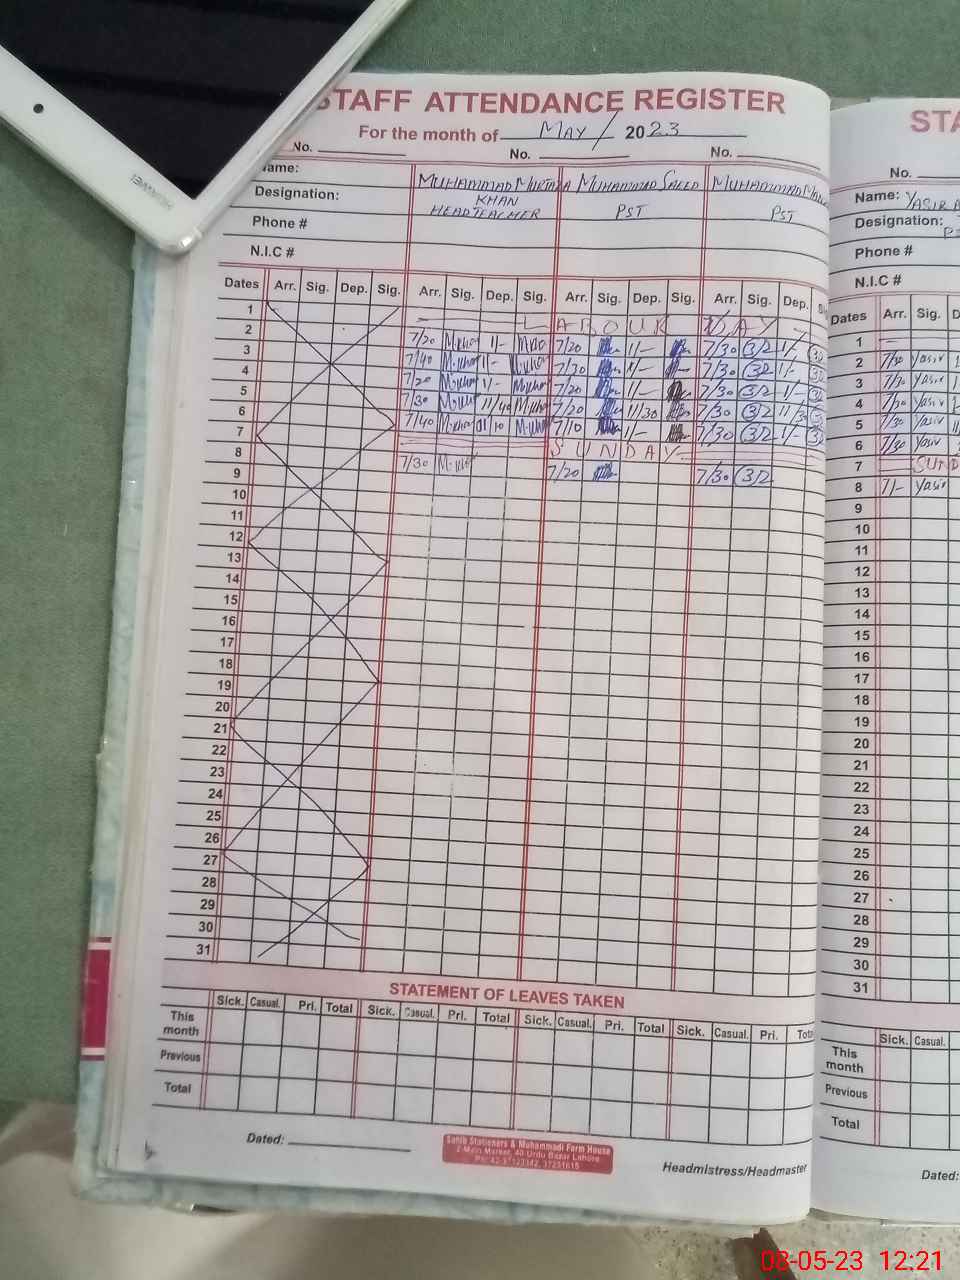 STAFF ATTENDANCE REGISTER
For the month of MAY / 2023
No. No. No.
Name: MUHAMMAD MURTAZA KHAN MUHAMMAD SAEED MUHAMMAD
Designation: HEADTEACHER PST PST
Phone #
N.I.C #
Dates Arr. Sig. Dep. Sig. Arr. Sig. Dep. Sig. Arr. Sig. Dep. Sig. Arr. Sig. Dep.
1 LABOUR DAY
2 7/20 M.Khan 1/- 7/20 1/- 7/30 1/-
3 7/40 M.Khan 1/- M.Khan 7/30 1/-
4 7/20 M.Khan 1/- M.Khan 7/20 1/- 7/30 1/-
5 7/30 11/40 M.Khan 7/20 11/30 7/30
6 7/40 M.Khan M.Khan 7/10 1/- 7/30 1/-
7 SUNDAY
8 7/30 M.Khan 7/20 7/30
9
10
11
12
13
14
15
16
17
18
19
20
21
22
23
24
25
26
27
28
29
30
31
STATEMENT OF LEAVES TAKEN
Sick. Casual. Pri. Total Sick. Casual. Pri. Total Sick. Casual. Pri. Total Sick. Casual. Pri.
This month
Previous
Total
Dated:
Sahib Stationers & Muhammadi Farm House
2-Main Market, 40 Urdu Bazar Lahore
Headmistress/Headmaster
STA
No.
Name: YASIR
Designation:
Phone #
N.I.C #
Dates Arr. Sig.
1
2 7/30 Yasir
3 7/30 Yasir
4 7/20 Yasir
5 7/30 Yasir
6 7/30 Yasir
7 SUND
8 7/- Yasir
9
10
11
12
13
14
15
16
17
18
19
20
21
22
23
24
25
26
27
28
29
30
31
Sick. Casual.
This month
Previous
Total
Dated:
HUAWEI
08-05-23 12:21